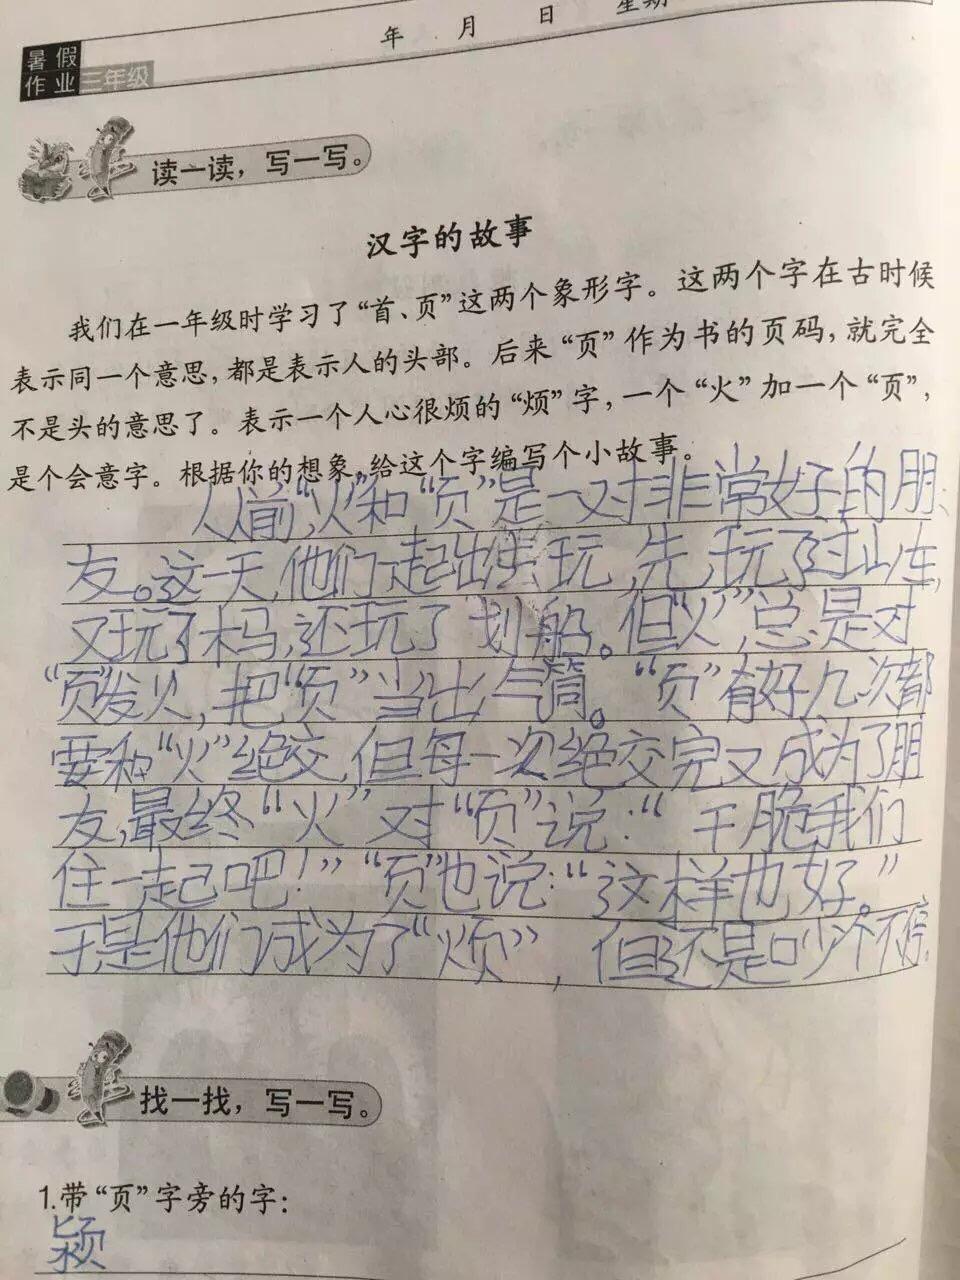 年 月 日 星期
暑假
作业 三年级
读一读，写一写。
汉字的故事
我们在一年级时学习了“首、页”这两个象形字。这两个字在古时候
表示同一个意思，都是表示人的头部。后来“页”作为书的页码，就完全
不是头的意思了。表示一个人心很烦的“烦”字，一个“火”加一个“页”，
是个会意字。根据你的想象，给这个字编写个小故事。
从前，“火”和“页”是一对非常好的朋
友。这一天，他们一起出去玩，先玩了过山车，
又玩了木马，还玩了划船。但“火”，总是对
“页”发火，把“页”当出气筒。“页”有好几次都
要和“火”绝交，但每一次绝交完又成为了朋
友，最终“火”对“页”说：“干脆我们
住一起吧！”“页”也说：“这样也好。”
于是他们成为了“烦”，但还是吵个不停。
找一找，写一写。
1.带“页”字旁的字：
颍